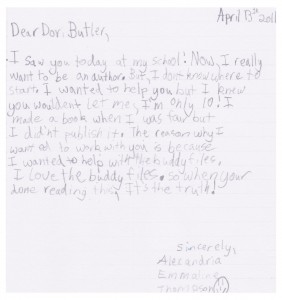 April 13th 2011
Dear Dori Butler,
I saw you today at my school! Now, I really
want to be an author. But, I don't know where to
start. I wanted to help you but I knew
you wouldent let me, I'm only 10! I
made a book when I was four but
I didn't publish it. The reason why I
wanted to work with you is because
I wanted to help with the buddy files.
I love the buddy files. so when your
done reading this, It's the truth!
sincerely,
Alexandria
Emmaline
Thompson